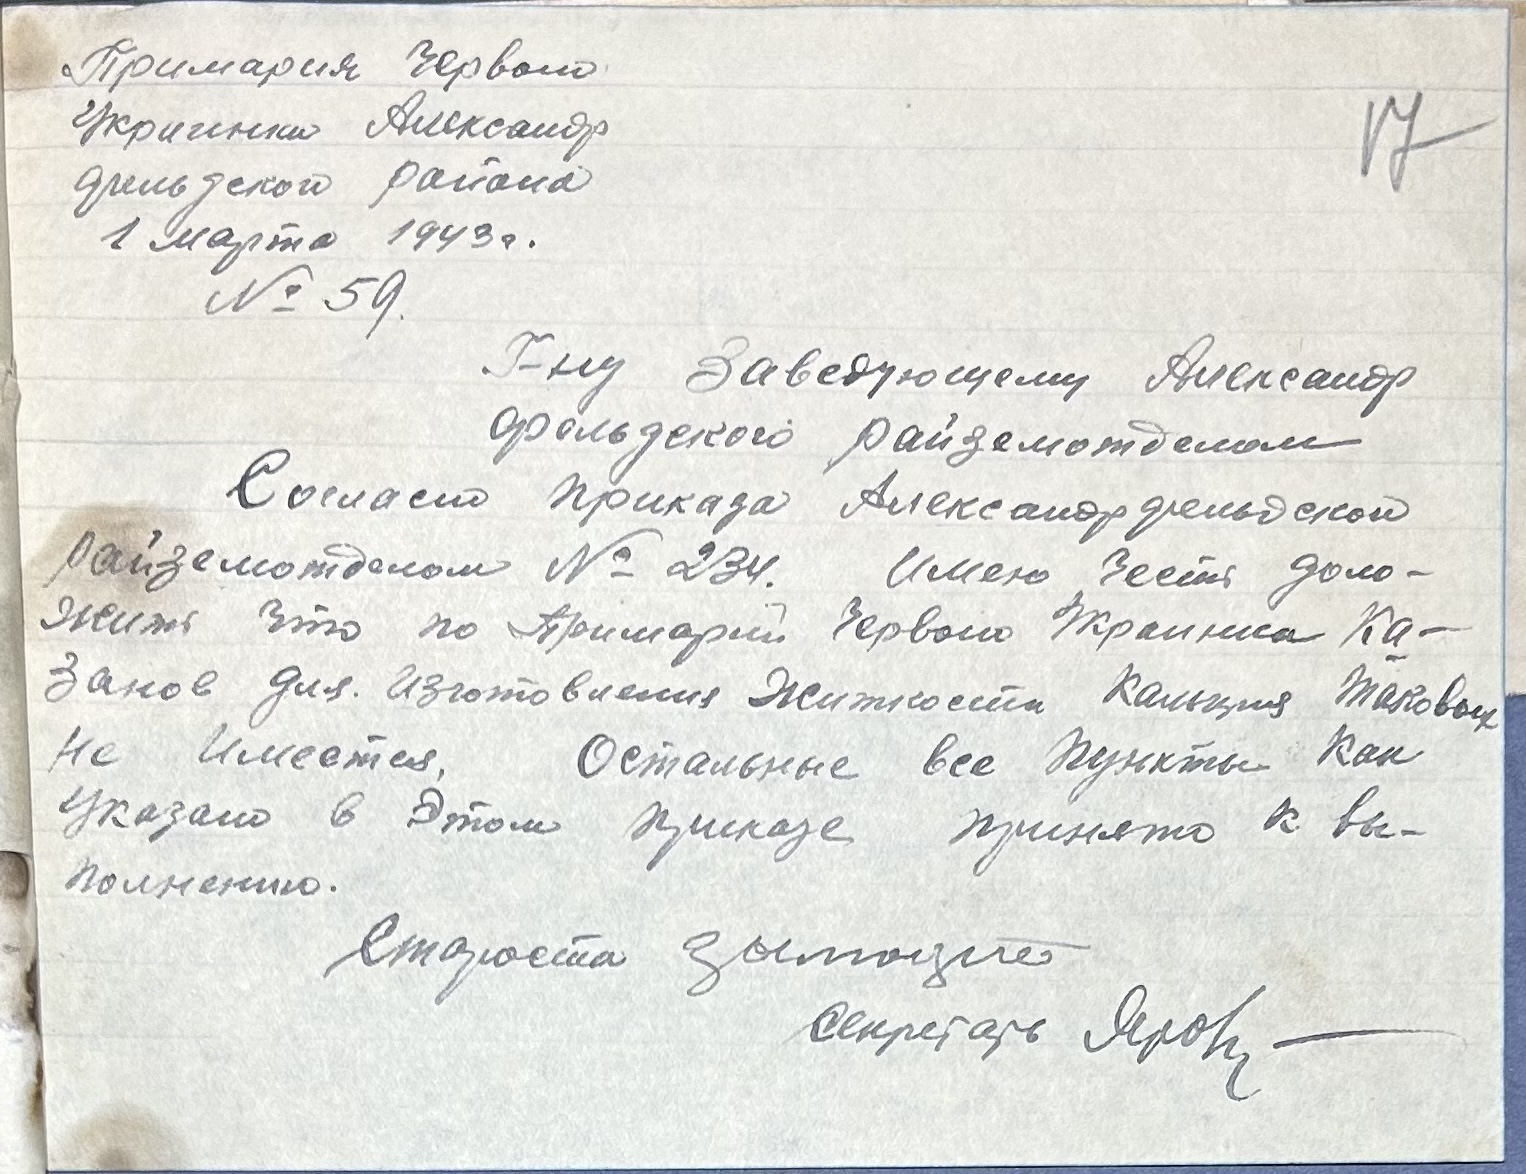 Примария Червоно
Украинка Александр
фельдской района
1 марта 1943г.
№ 59.
17
Г-ну Заведующему Александр
фельдского Райземотделом
Согласно приказа Александрфельдской
Райземотделом № 234. Имею Честь доло-
жить Что по Примарии Червоно Украинка Ка-
занов для Изготовления Житкости Кальция таковых
Не Имеется, Остальные все Пункты Как
Указано в Этом Приказе принято к вы-
полнению.
Староста
Секретарь